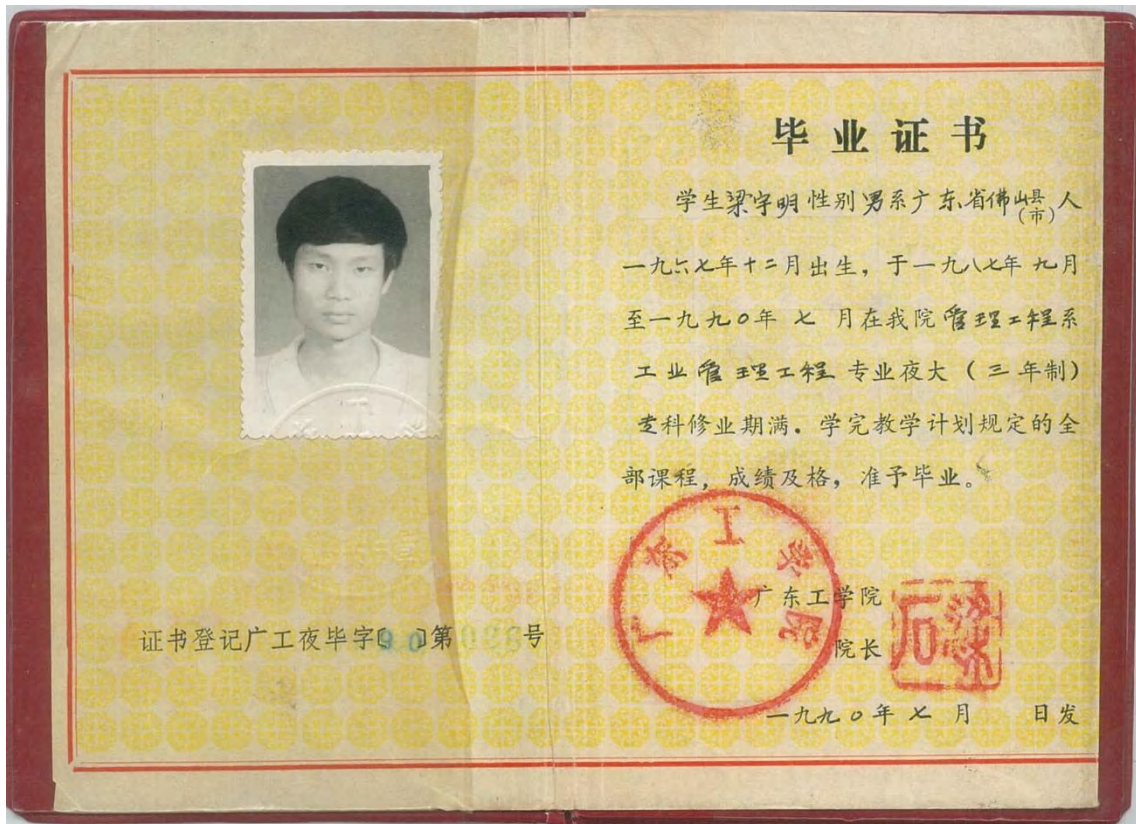 毕业证书
学生梁宇明性别男系广东省佛山县(市)人
一九六七年十二月出生，于一九八七年九月
至一九九〇年七月在我院管理工程系
工业管理工程专业夜大（三年制）
专科修业期满。学完教学计划规定的全
部课程，成绩及格，准予毕业。
广东工学院
广东工学院
院长
一九九〇年七月 日发
证书登记广工夜毕字〔90〕第 号